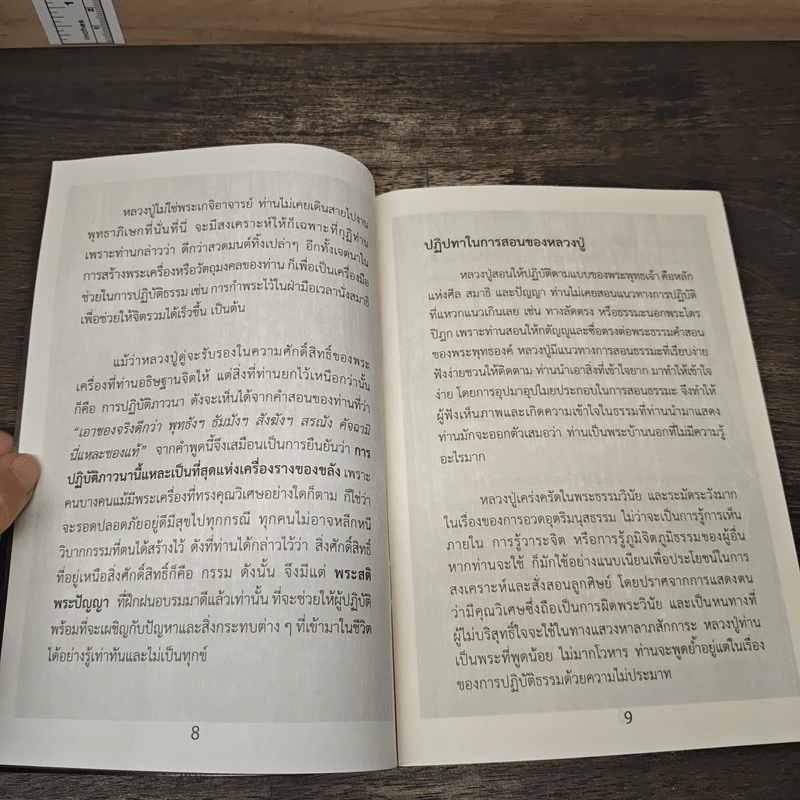 1
inches
2
หลวงปู่ไม่ใช่พระเกจิอาจารย์ ท่านไม่เคยเดินสายไปงาน
พุทธาภิเษกที่นั่นที่นี่ จะมีสงเคราะห์ให้ก็เฉพาะที่กุฏิท่าน
เพราะท่านกล่าวว่า ดีกว่าสวดมนต์ทิ้งเปล่าๆ อีกทั้งเจตนาใน
การสร้างพระเครื่องหรือวัตถุมงคลของท่าน ก็เพื่อเป็นเครื่องมือ
ช่วยในการปฏิบัติธรรม เช่น การกำพระไว้ในฝ่ามือเวลานั่งสมาธิ
เพื่อช่วยให้จิตรวมได้เร็วขึ้น เป็นต้น
แม้ว่าหลวงปู่ดู่จะรับรองในความศักดิ์สิทธิ์ของพระ
เครื่องที่ท่านอธิษฐานจิตให้ แต่สิ่งที่ท่านยกไว้เหนือกว่านั้น
ก็คือ การปฏิบัติภาวนา ดังจะเห็นได้จากคำสอนของท่านที่ว่า
“เอาของจริงดีกว่า พุทธังฯ ธัมมังฯ สังฆังฯ สรณัง คัจฉามิ
นี่แหละของแท้” จากคำพูดนี้จึงเสมือนเป็นการยืนยันว่า การ
ปฏิบัติภาวนานี้แหละเป็นที่สุดแห่งเครื่องรางของขลัง เพราะ
คนบางคนแม้มีพระเครื่องที่ทรงคุณวิเศษอย่างใดก็ตาม ก็ใช่ว่า
จะรอดปลอดภัยอยู่ดีมีสุขไปทุกกรณี ทุกคนไม่อาจหลีกหนี
วิบากกรรมที่ตนได้สร้างไว้ ดังที่ท่านได้กล่าวไว้ว่า สิ่งศักดิ์สิทธิ์
ที่อยู่เหนือสิ่งศักดิ์สิทธิ์ก็คือ กรรม ดังนั้น จึงมีแต่ พระสติ
พระปัญญา ที่ฝึกฝนอบรมมาดีแล้วเท่านั้น ที่จะช่วยให้ผู้ปฏิบัติ
พร้อมที่จะเผชิญกับปัญหาและสิ่งกระทบต่าง ๆ ที่เข้ามาในชีวิต
ได้อย่างรู้เท่าทันและไม่เป็นทุกข์
8
ปฏิปทาในการสอนของหลวงปู่
หลวงปู่สอนให้ปฏิบัติตามแบบของพระพุทธเจ้า คือหลัก
แห่งศีล สมาธิ และปัญญา ท่านไม่เคยสอนแนวทางการปฏิบัติ
ที่แหวกแนวเกินเลย เช่น ทางลัดตรง หรือธรรมะนอกพระไตร
ปิฎก เพราะท่านสอนให้กตัญญูและซื่อตรงต่อพระธรรมคำสอน
ของพระพุทธองค์ หลวงปู่มีแนวทางการสอนธรรมะที่เรียบง่าย
ฟังง่ายชวนให้ติดตาม ท่านนำเอาสิ่งที่เข้าใจยาก มาทำให้เข้าใจ
ง่าย โดยการอุปมาอุปไมยประกอบในการสอนธรรมะ จึงทำให้
ผู้ฟังเห็นภาพและเกิดความเข้าใจในธรรมที่ท่านนำมาแสดง
ท่านมักจะออกตัวเสมอว่า ท่านเป็นพระบ้านนอกที่ไม่มีความรู้
อะไรมาก
หลวงปู่เคร่งครัดในพระธรรมวินัย และระมัดระวังมาก
ในเรื่องของการอวดอุตริมนุสธรรม ไม่ว่าจะเป็นการรู้การเห็น
ภายใน การรู้วาระจิต หรือการรู้ภูมิจิตภูมิธรรมของผู้อื่น
หากท่านจะใช้ ก็มักใช้อย่างแนบเนียนเพื่อประโยชน์ในการ
สงเคราะห์และสั่งสอนลูกศิษย์ โดยปราศจากการแสดงตน
ว่ามีคุณวิเศษซึ่งถือเป็นการผิดพระวินัย และเป็นหนทางที่
ผู้ไม่บริสุทธิ์ใจจะใช้ในทางแสวงหาลาภสักการะ หลวงปู่ท่าน
เป็นพระที่พูดน้อย ไม่มากโวหาร ท่านจะพูดย้ำอยู่แต่ในเรื่อง
ของการปฏิบัติธรรมด้วยความไม่ประมาท
9